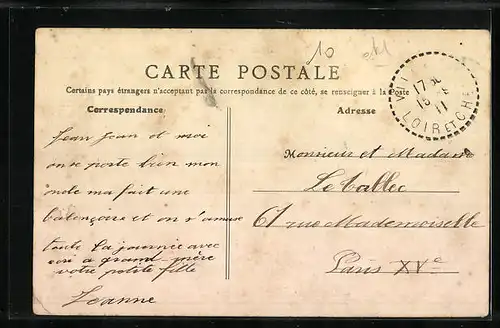 10
CARTE POSTALE
Certains pays étrangers n'acceptant par la correspondance de ce côté, se renseigner à la Poste
Correspondance
Jean Jean et moi
on se porte bien mon
oncle ma fait une
balençoire et on s'amuse
toute la journée avec
a grand-mère
votre petite fille
Jeanne
Adresse
Monsieur et Madame
Le
61 rue Mademoiselle
Paris XVe
17
15
11
LOIR ET CHER